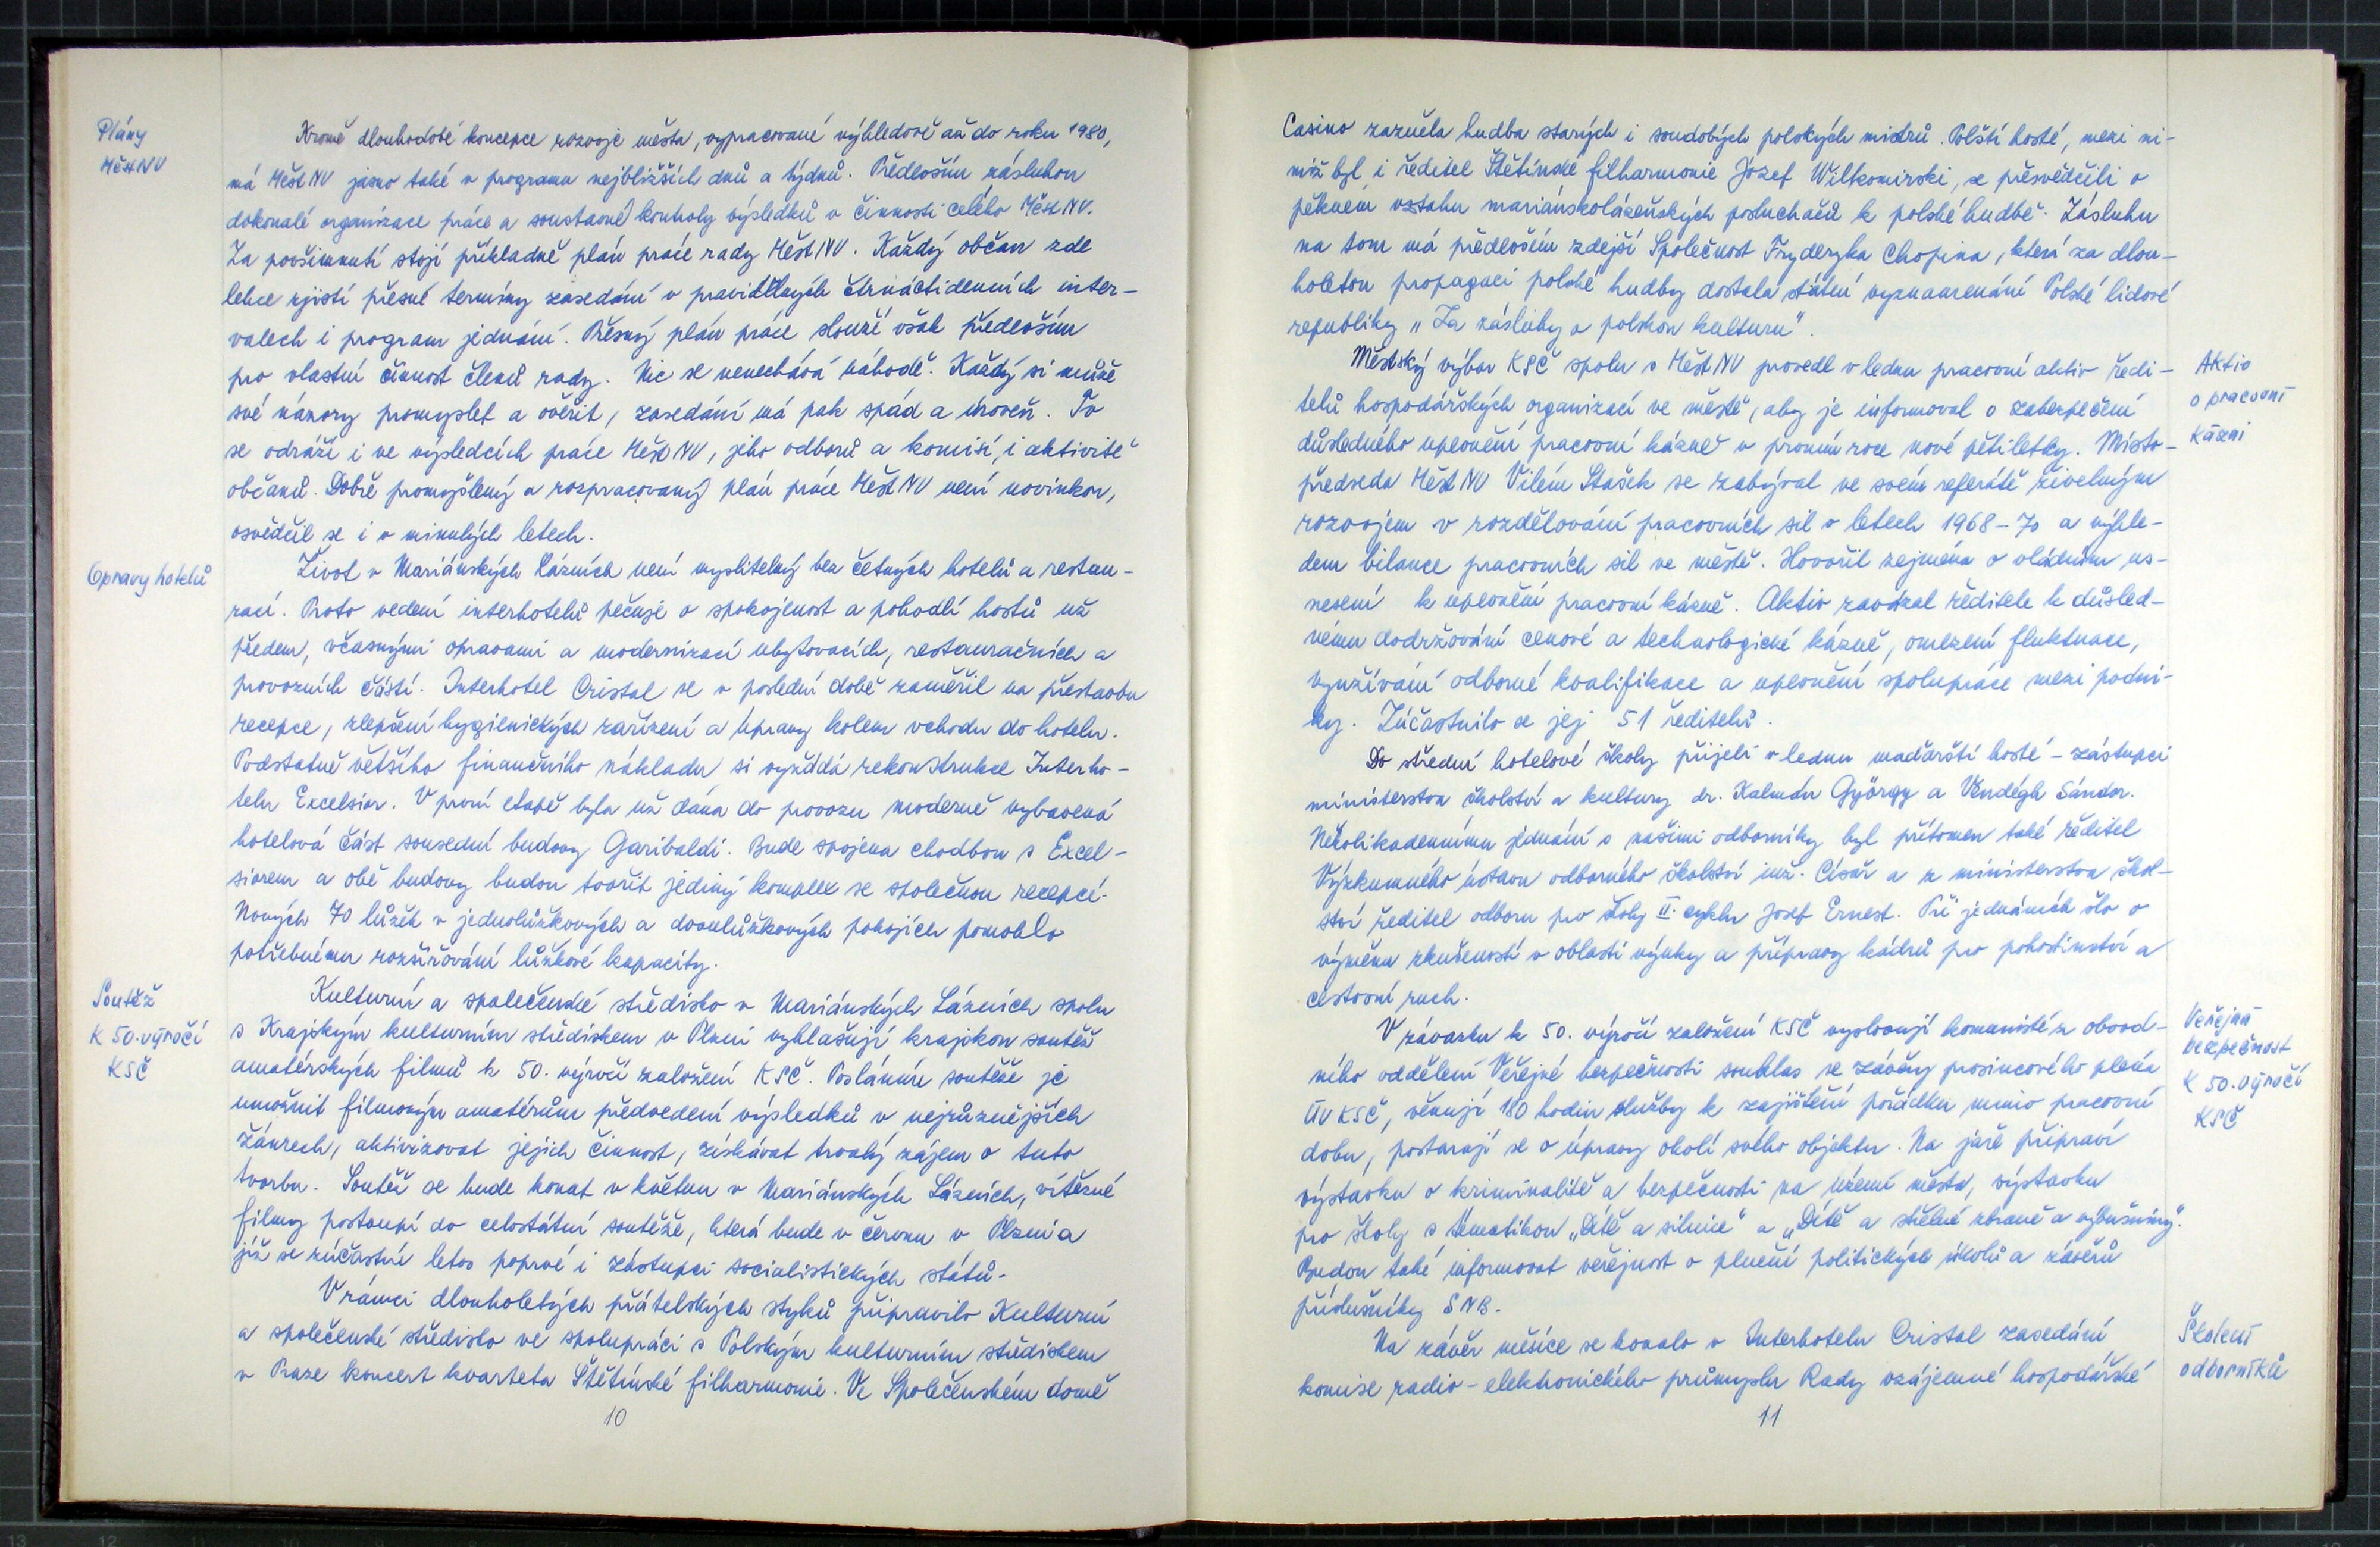 Plány
MěstNV
Kromě dlouhodobé koncepce rozvoje města, vypracované výhledově až do roku 1980,
má Měst NV jasno také v programu nejbližších dnů a týdnů. Především zásluhou
dokonalé organizace práce a soustavné kontroly výsledků v činnosti celého Měst NV.
Za povšimnutí stojí příkladně plán práce rady Měst NV. Každý občan zde
lehce zjistí přesné termíny zasedání v pravidelných čtrnáctidenních inter-
valech i program jednání. Přesný plán práce slouží však především
pro vlastní činnost členů rady. Nic se nenechává náhodě. Každý si může
své názory promyslet a ověřit, zasedání má pak spád a úroveň. To
se odráží i ve výsledcích práce Měst NV, jeho odborů a komisí, i aktivitě
občanů. Dobře promyšlený a rozpracovaný plán práce Měst NV není novinkou,
osvědčil se i v minulých letech.
Opravy hotelů
Život v Mariánských Lázních není myslitelný bez četných hotelů a restau-
rací. Proto vedení interhotelů pečuje o spokojenost a pohodlí hostů už
předem, včasnými opravami a modernizací ubytovacích, restauračních a
provozních částí. Interhotel Cristal se v poslední době zaměřil na přestavbu
recepce, zlepšení hygienických zařízení a úpravy kolem vchodu do hotelu.
Podstatně většího finančního nákladu si vyžádá rekonstrukce Interho-
telu Excelsior. V první etapě byla už dána do provozu moderně vybavená
hotelová část sousední budovy Garibaldi. Bude spojena chodbou s Excel-
siorem a obě budovy budou tvořit jediný komplex se společnou recepcí.
Nových 70 lůžek v jednolůžkových a dvoulůžkových pokojích pomohlo
potřebnému rozšiřování lůžkové kapacity.
Soutěž
K 50. výročí
KSČ
Kulturní a společenské středisko v Mariánských Lázních spolu
s Krajským kulturním střediskem v Plzni vyhlašují krajskou soutěž
amatérských filmů k 50. výročí založení KSČ. Posláním soutěže je
umožnit filmovým amatérům předvedení výsledků v nejrůznějších
žánrech, aktivizovat jejich činnost, získávat trvalý zájem o tuto
tvorbu. Soutěž se bude konat v květnu v Mariánských Lázních, vítězné
filmy postoupí do celostátní soutěže, která bude v červnu v Plzni a
jíž se zúčastní letos poprvé i zástupci socialistických států.
V rámci dlouholetých přátelských styků připravilo Kulturní
a společenské středisko ve spolupráci s Polským kulturním střediskem
v Praze koncert kvarteta Štětínské filharmonie. Ve Společenském domě
10
Casino zazněla hudba starých i soudobých polských mistrů. Polští hosté, mezi ni-
miž byl i ředitel Štětínské filharmonie Józef Wiłkomirski, se přesvědčili o
pěkném vztahu mariánskolázeňských posluchačů k polské hudbě. Zásluhu
na tom má především zdejší Společnost Fryderyka Chopina, která za dlou-
holetou propagaci polské hudby dostala státní vyznamenání Polské lidové
republiky „Za zásluhy o polskou kulturu".
Aktiv
o pracovní
kázni
Městský výbor KSČ spolu s Měst NV provedl v lednu pracovní aktiv ředi-
telů hospodářských organizací ve městě, aby je informoval o zabezpečení
důsledného upevnění pracovní kázně v prvním roce nové pětiletky. Místo-
předseda Měst NV Vilém Stašek se zabýval ve svém referátě živelným
rozvojem v rozdělování pracovních sil v letech 1968-70 a výhle-
dem bilance pracovních sil ve městě. Hovořil zejména o vládním us-
nesení k upevnění pracovní kázně. Aktiv zavázal ředitele k důsled-
nému dodržování cenové a technologické kázně, omezení fluktuace,
využívání odborné kvalifikace a upevnění spolupráce mezi podni-
ky. Zúčastnilo se jej 51 ředitelů.
Do střední hotelové školy přijeli v lednu maďarští hosté - zástupci
ministerstva školství a kultury dr. Kalmár György a Vendégh Sándor.
Několikadennímu jednání s našimi odborníky byl přítomen také ředitel
Výzkumného ústavu odborného školství inž. Císař a z ministerstva škol-
ství ředitel odboru pro školy II. cyklu Josef Ernest. Při jednáních šlo o
výměnu zkušeností v oblasti výuky a přípravy kádrů pro pohostinství a
cestovní ruch.
Veřejná
bezpečnost
K 50. výročí
KSČ
V závazku k 50. výročí založení KSČ vyslovují komunisté z obvod-
ního oddělení Veřejné bezpečnosti souhlas se závěry prosincového pléna
ÚV KSČ, věnují 180 hodin služby k zajištění pořádku mimo pracovní
dobu, postarají se o úpravy okolí svého objektu. Na jaře připraví
výstavku o kriminalitě a bezpečnosti na území města, výstavku
pro školy s tematikou „Dítě a silnice" a „Dítě a střelné zbraně a výbušniny".
Budou také informovat veřejnost o plnění politických úkolů a závěrů
příslušníky SNB.
Školení
odborníků
Na závěr měsíce se konalo v Interhotelu Cristal zasedání
komise radio-elektronického průmyslu Rady vzájemné hospodářské
11